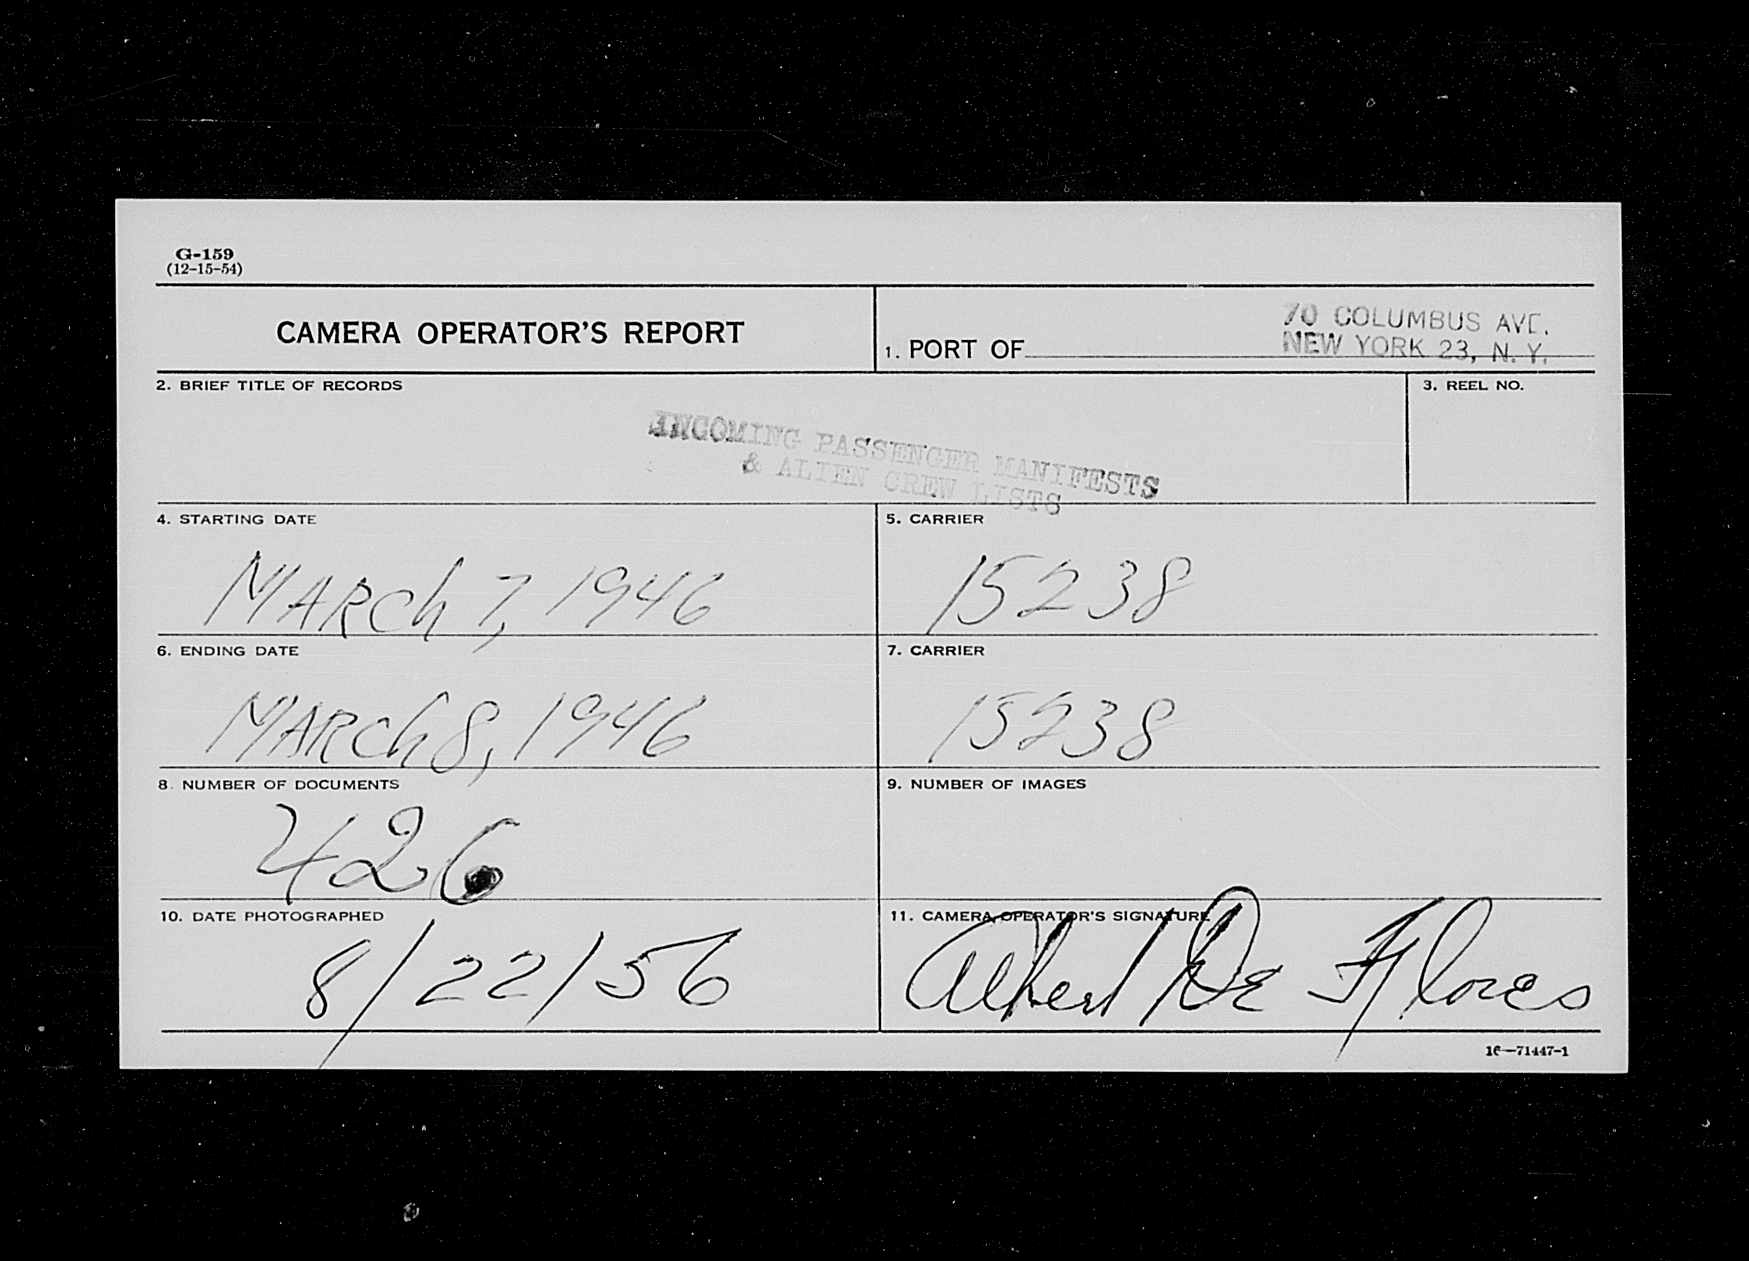 G-159
(12-15-54)
CAMERA OPERATOR'S REPORT
1. PORT OF
70 COLUMBUS AVE.
NEW YORK 23, N. Y.
2. BRIEF TITLE OF RECORDS
INCOMING PASSENGER MANIFESTS
& ALIEN CREW LISTS
3. REEL NO.
4. STARTING DATE
MARCh 7, 1946
5. CARRIER
15238
6. ENDING DATE
MARCh 8, 1946
7. CARRIER
15238
8. NUMBER OF DOCUMENTS
426
9. NUMBER OF IMAGES
10. DATE PHOTOGRAPHED
8/22/56
11. CAMERA OPERATOR'S SIGNATURE
Albert De Flores
16—71447-1